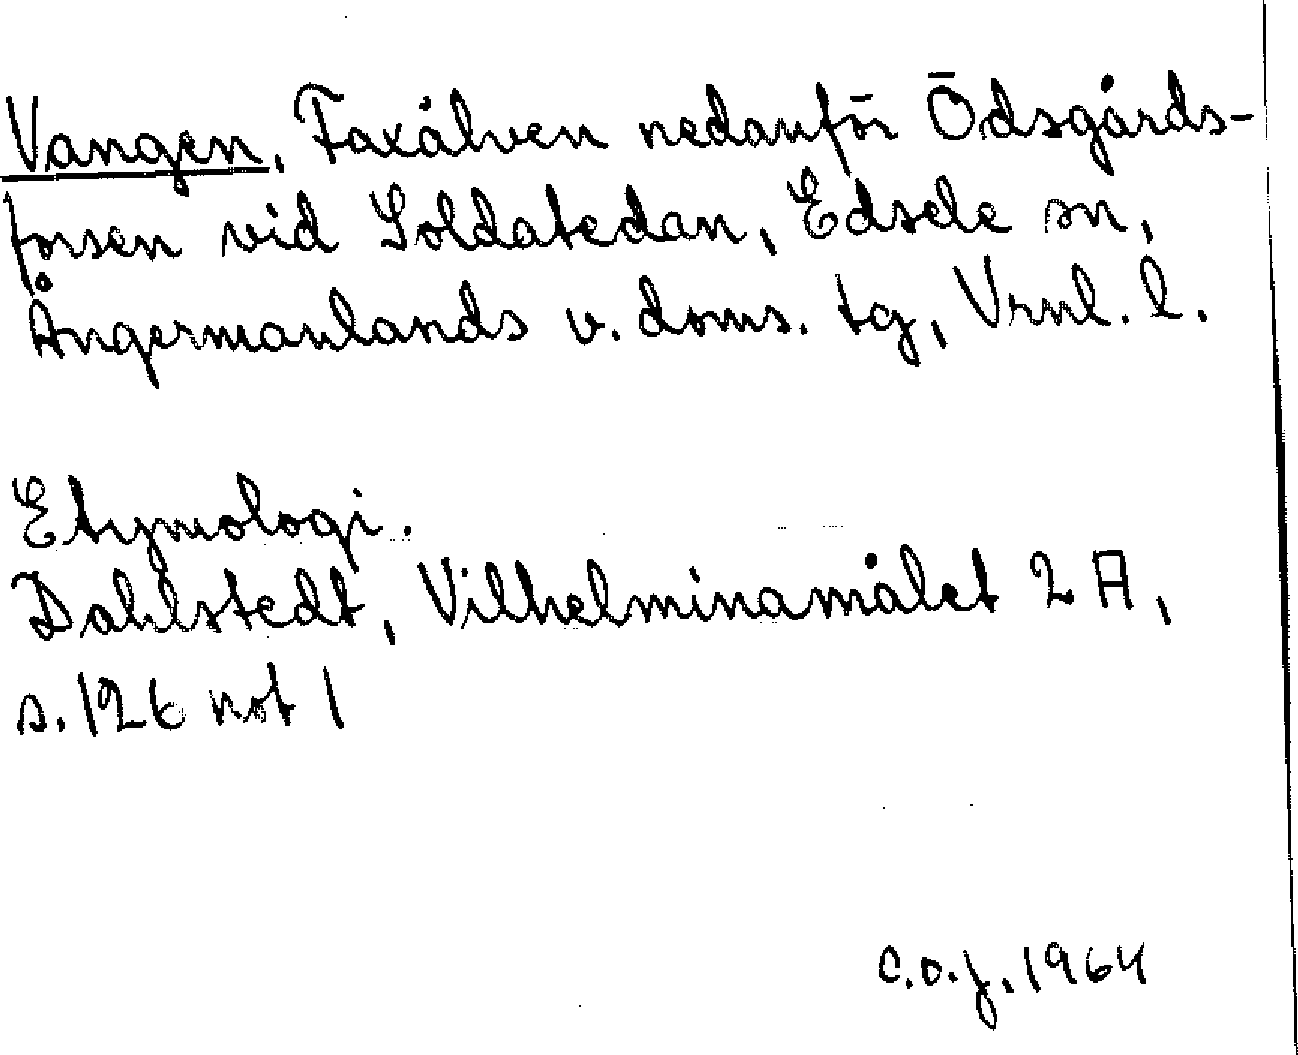 Vangen, Faxälven nedanför Ödsgårds-
forsen vid Soldatedan, Edsele sn,
Ångermanlands v. doms. tg, Vrnl. l.
Etymologi.
Dahlstedt, Vilhelminamålet 2 A,
s. 126 not 1
C.O.J. 1964